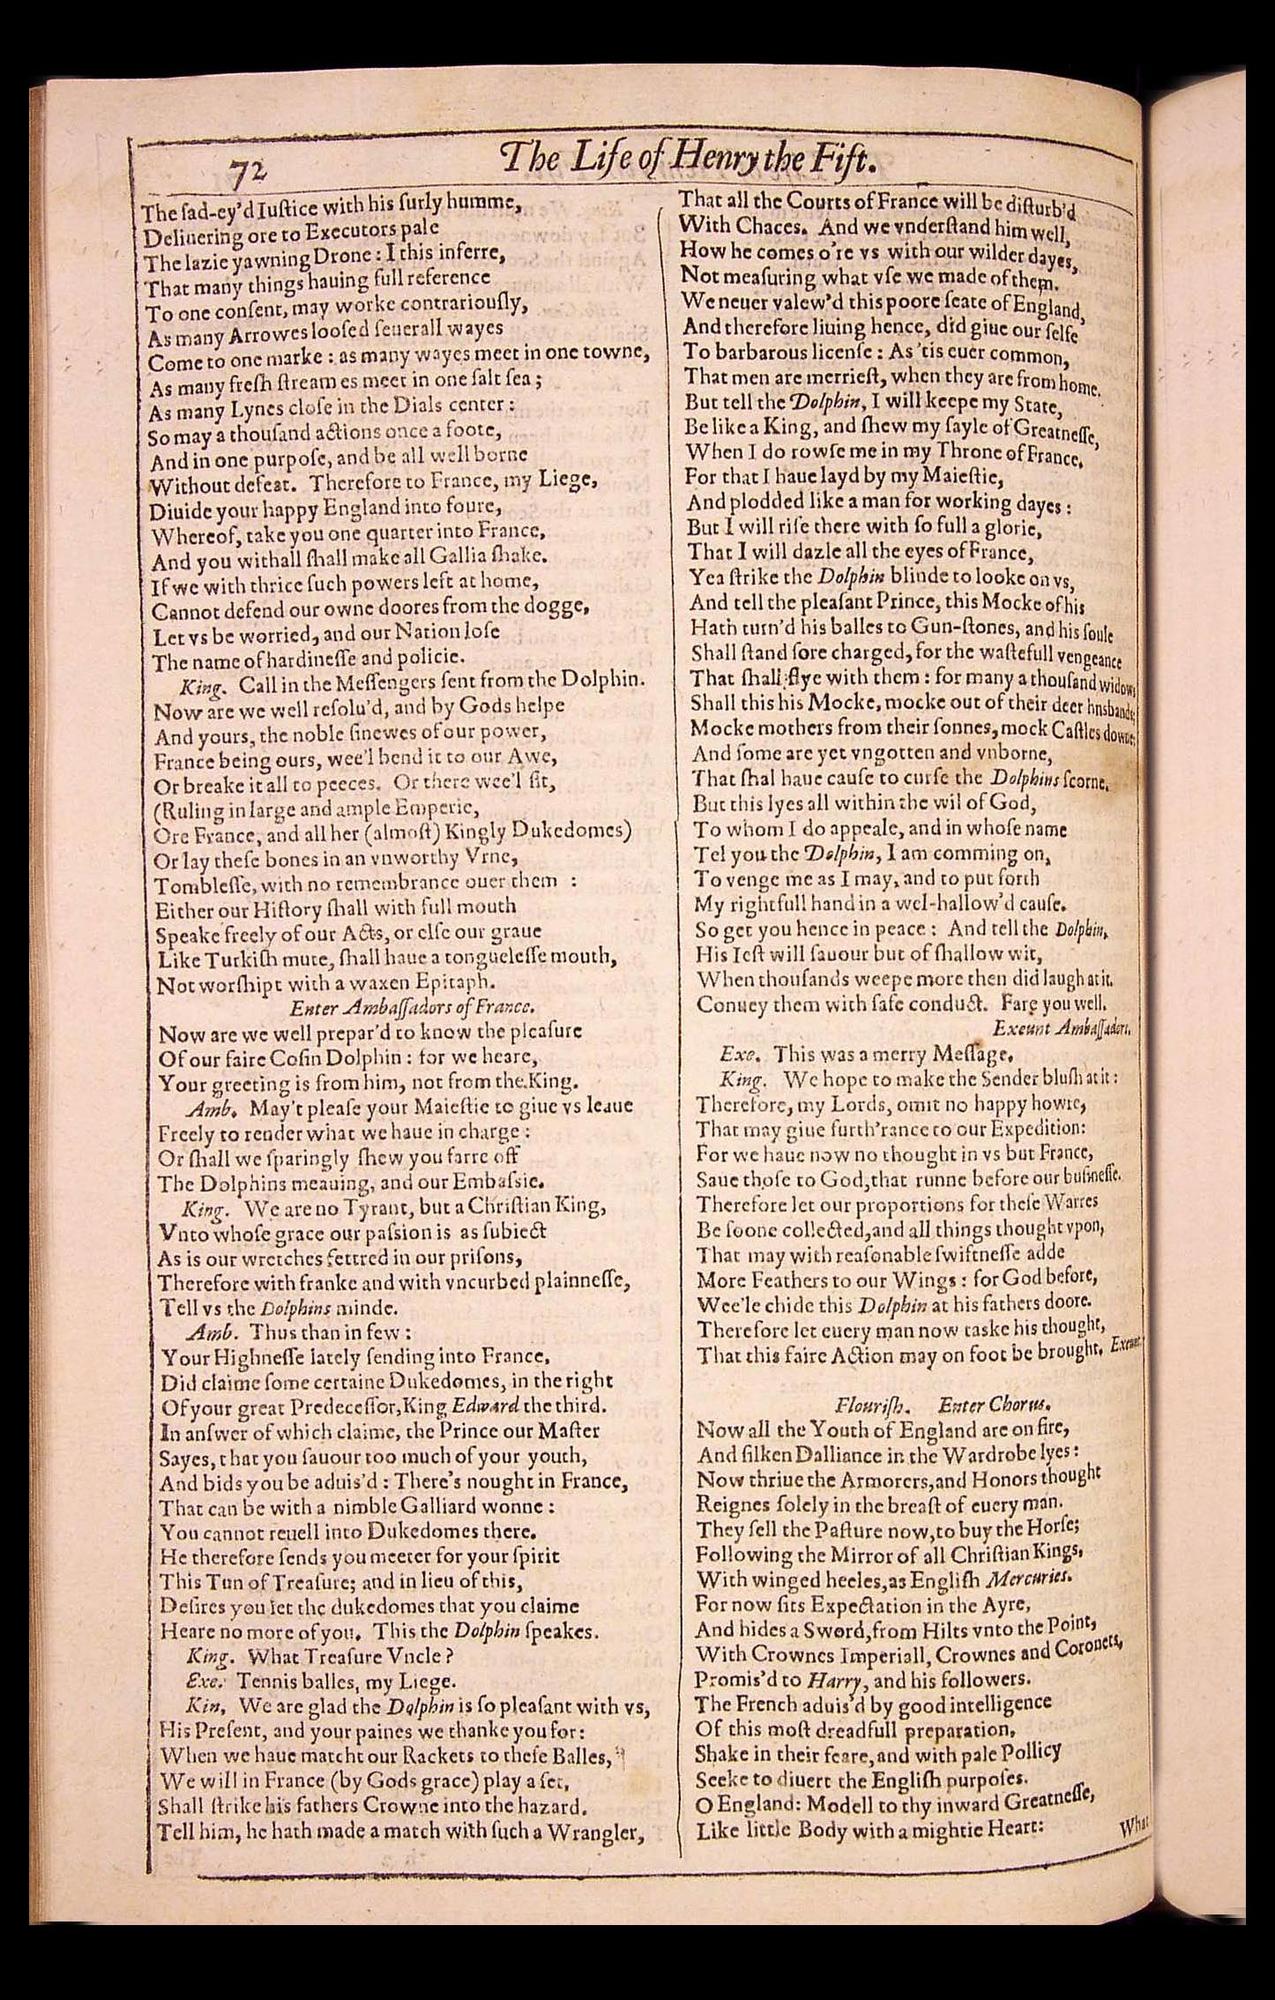 72
The Life of Henry the Fift.
The ſad-ey'd Iuſtice with his ſurly humme,
Deliuering ore to Executors pale
The lazie yawning Drone: I this inferre,
That many things hauing full reference
To one conſent, may worke contrariouſly,
As many Arrowes looſed ſeuerall wayes
Come to one marke: as many wayes meet in one towne,
As many freſh ſtreames meet in one ſalt ſea;
As many Lynes cloſe in the Dials center:
So may a thouſand actions once a foote,
And in one purpoſe, and be all well borne
Without defeat. Therefore to France, my Liege,
Diuide your happy England into foure,
Whereof, take you one quarter into France,
And you withall ſhall make all Gallia ſhake.
If we with thrice ſuch powers left at home,
Cannot defend our owne doores from the dogge,
Let vs be worried, and our Nation loſe
The name of hardineſſe and policie.
King. Call in the Meſſengers ſent from the Dolphin.
Now are we well reſolu'd, and by Gods helpe
And yours, the noble ſinewes of our power,
France being ours, wee'l bend it to our Awe,
Or breake it all to peeces. Or there wee'l ſit,
(Ruling in large and ample Emperie,
Ore France, and all her (almoſt) Kingly Dukedomes)
Or lay theſe bones in an vnworthy Vrne,
Tombleſſe, with no remembrance ouer them :
Either our Hiſtory ſhall with full mouth
Speake freely of our Acts, or elſe our graue
Like Turkiſh mute, ſhall haue a tongueleſſe mouth,
Not worſhipt with a waxen Epitaph.
Enter Ambaſſadors of France.
Now are we well prepar'd to know the pleaſure
Of our faire Coſin Dolphin: for we heare,
Your greeting is from him, not from the King.
Amb. May't pleaſe your Maieſtie to giue vs leaue
Freely to render what we haue in charge:
Or ſhall we ſparingly ſhew you farre off
The Dolphins meaning, and our Embaſsie.
King. We are no Tyrant, but a Chriſtian King,
Vnto whoſe grace our paſsion is as ſubiect
As is our wretches fettred in our priſons,
Therefore with franke and with vncurbed plainneſſe,
Tell vs the Dolphins minde.
Amb. Thus than in few:
Your Highneſſe lately ſending into France,
Did claime ſome certaine Dukedomes, in the right
Of your great Predeceſſor, King Edward the third.
In anſwer of which claime, the Prince our Maſter
Sayes, that you ſauour too much of your youth,
And bids you be aduis'd: There's nought in France,
That can be with a nimble Galliard wonne:
You cannot reuell into Dukedomes there.
He therefore ſends you meeter for your ſpirit
This Tun of Treaſure; and in lieu of this,
Deſires you let the dukedomes that you claime
Heare no more of you. This the Dolphin ſpeakes.
King. What Treaſure Vncle?
Exe. Tennis balles, my Liege.
Kin, We are glad the Dolphin is ſo pleaſant with vs,
His Preſent, and your paines we thanke you for:
When we haue matcht our Rackets to theſe Balles,
We will in France (by Gods grace) play a ſet,
Shall ſtrike his fathers Crowne into the hazard.
Tell him, he hath made a match with ſuch a Wrangler,
That all the Courts of France will be diſturb'd
With Chaces. And we vnderſtand him well,
How he comes o're vs with our wilder dayes,
Not meaſuring what vſe we made of them.
We neuer valew'd this poore ſeate of England,
And therefore liuing hence, did giue our ſelfe
To barbarous licenſe: As 'tis euer common,
That men are merrieſt, when they are from home.
But tell the Dolphin, I will keepe my State,
Be like a King, and ſhew my ſayle of Greatneſſe,
When I do rowſe me in my Throne of France.
For that I haue layd by my Maieſtie,
And plodded like a man for working dayes:
But I will riſe there with ſo full a glorie,
That I will dazle all the eyes of France,
Yea ſtrike the Dolphin blinde to looke on vs,
And tell the pleaſant Prince, this Mocke of his
Hath turn'd his balles to Gun-ſtones, and his ſoule
Shall ſtand ſore charged, for the waſtefull vengeance
That ſhall flye with them: for many a thouſand widows
Shall this his Mocke, mocke out of their deer hnsbands;
Mocke mothers from their ſonnes, mock Caſtles downe:
And ſome are yet vngotten and vnborne,
That ſhal haue cauſe to curſe the Dolphins ſcorne.
But this lyes all within the wil of God,
To whom I do appeale, and in whoſe name
Tel you the Dolphin, I am comming on,
To venge me as I may, and to put forth
My rightfull hand in a wel-hallow'd cauſe.
So get you hence in peace: And tell the Dolphin,
His Ieſt will ſauour but of ſhallow wit,
When thouſands weepe more then did laugh at it.
Conuey them with ſafe conduct. Fare you well.
Exeunt Ambaſſadors.
Exe. This was a merry Meſſage.
King. We hope to make the Sender bluſh at it:
Therefore, my Lords, omit no happy howre,
That may giue furth'rance to our Expedition:
For we haue now no thought in vs but France,
Saue thoſe to God, that runne before our buſineſſe.
Therefore let our proportions for theſe Warres
Be ſoone collected, and all things thought vpon,
That may with reaſonable ſwiftneſſe adde
More Feathers to our Wings: for God before,
Wee'le chide this Dolphin at his fathers doore.
Therefore let euery man now taske his thought,
That this faire Action may on foot be brought. Exeunt.
Flouriſh. Enter Chorus.
Now all the Youth of England are on fire,
And ſilken Dalliance in the Wardrobe lyes:
Now thriue the Armorers, and Honors thought
Reignes ſolely in the breaſt of euery man.
They ſell the Paſture now, to buy the Horſe;
Following the Mirror of all Chriſtian Kings,
With winged heeles, as Engliſh Mercuries.
For now ſits Expectation in the Ayre,
And hides a Sword, from Hilts vnto the Point,
With Crownes Imperiall, Crownes and Coronets,
Promis'd to Harry, and his followers.
The French aduis'd by good intelligence
Of this moſt dreadfull preparation,
Shake in their feare, and with pale Pollicy
Seeke to diuert the Engliſh purpoſes.
O England: Modell to thy inward Greatneſſe,
Like little Body with a mightie Heart:
What